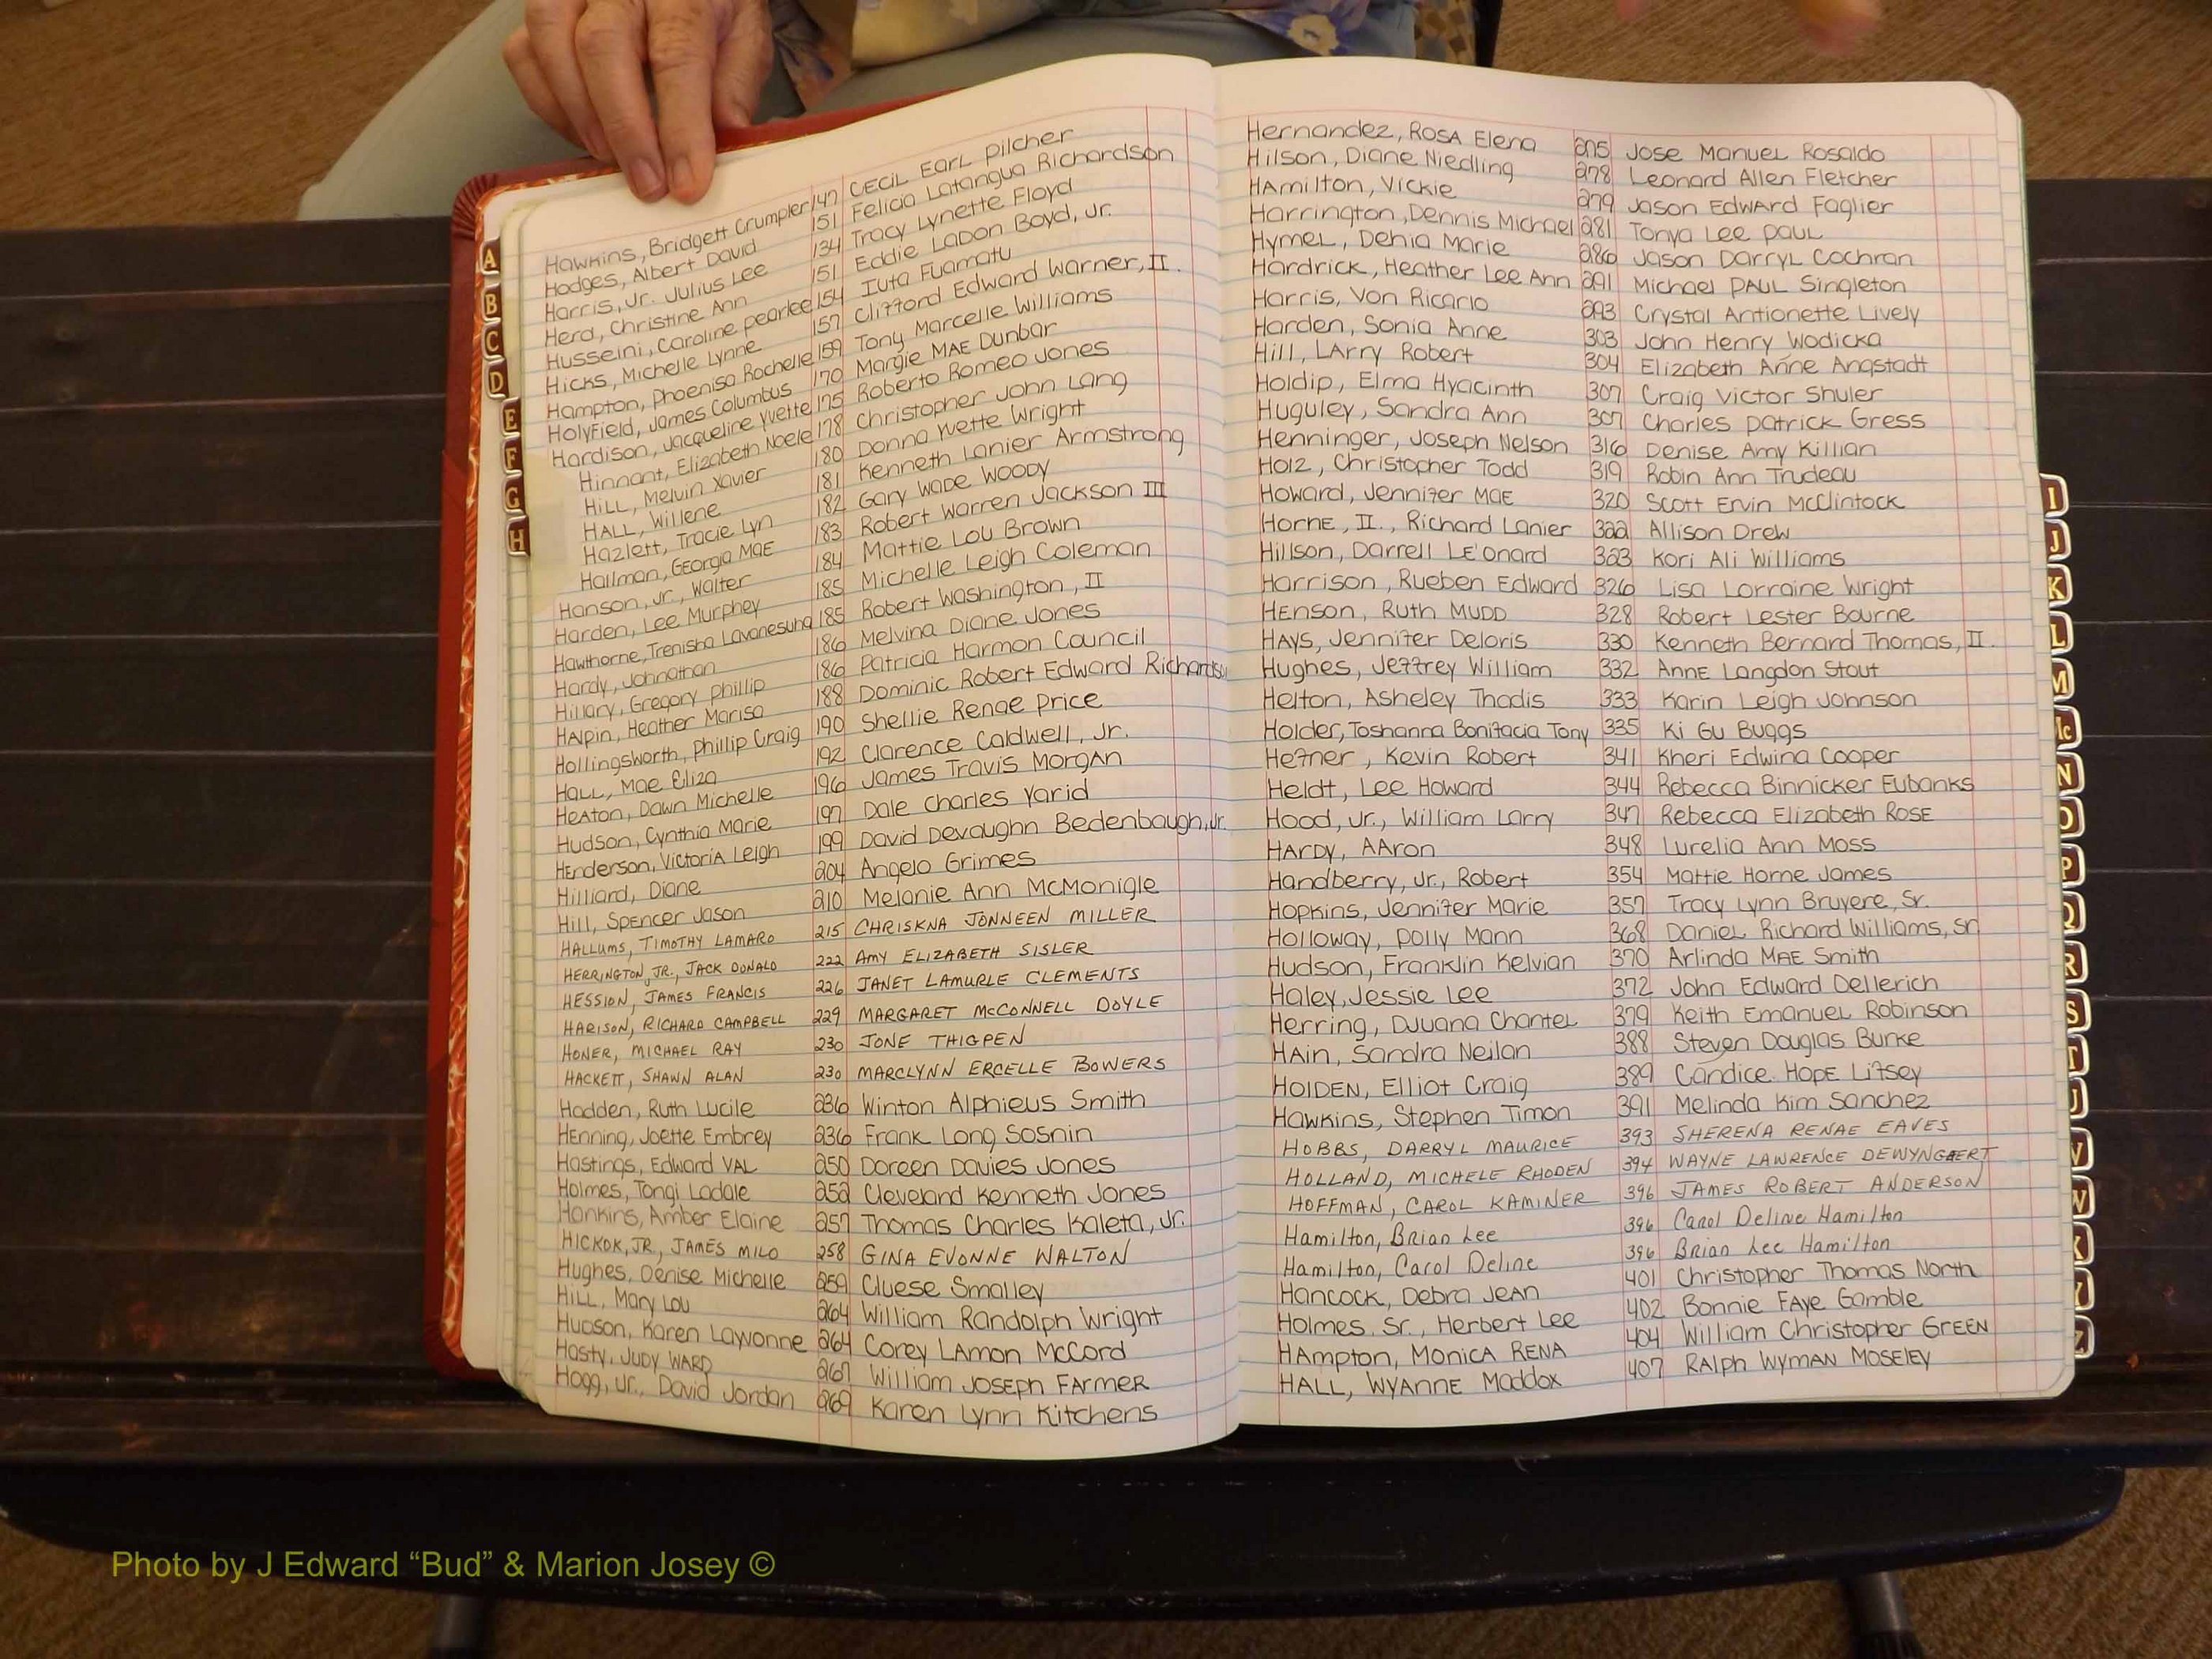 Hawkins, Bridgett Crumpler 147 CECIL EARL Pilcher
Hodges, Albert David 151 Felicia Latangua Richardson
Harris, Jr. Julius Lee 134 Tracy Lynette Floyd
Herd, Christine Ann 151 Eddie Ladon Boyd, Jr.
Husseini, Caroline Pearlee 154 Iuta Fuamatu
Hicks, Michelle Lynne 157 Clifford Edward Warner, II.
Hampton, Phoenisa Rochelle 159 Tony Marcelle Williams
HolyField, James Columbus 170 Margie MAE Dunbar
Hardison, Jacqueline Yvette 175 Roberto Romeo Jones
Hinnant, Elizabeth Noele 178 Christopher John Lang
Hill, Melvin Xavier 180 Donna Yvette Wright
HALL, Willene 181 Kenneth Lanier Armstrong
Hazlett, Tracie Lyn 182 Gary Wade Woody
Hallman, GEorgia MAE 183 Robert Warren Jackson III
Hanson, Jr., Walter 184 Mattie Lou Brown
Harden, Lee Murphey 185 Michelle Leigh Coleman
Hawthorne, Trenisha Lavanesung 185 Robert Washington, II
Hardy, Johnathan 186 Melvina Diane Jones
Hillary, Gregory Phillip 186 Patricia Harmon Council
HAlpin, Heather Marisa 188 Dominic Robert Edward Richardson
Hollingsworth, Phillip Craig 190 Shellie Renae Price
HALL, Mae Eliza 192 Clarence Caldwell, Jr.
HEATon, Dawn Michelle 196 James Travis MorgAn
Hudson, Cynthia Marie 197 Dale Charles Yarid
HEnderson, Victoria Leigh 199 David Devaughn Bedenbaugh, Jr.
Hilliard, Diane 204 Angelo Grimes
Hill, Spencer Jason 210 Melanie Ann McMonigle
HALLUMS, TIMOTHY LAMARO 215 CHRISKNA JONNEEN MILLER
HERRINGTON, JR., JACK DONALD 222 AMY ELIZABETH SISLER
HESSION, JAMES FRANCIS 226 JANET LAMURLE CLEMENTS
HARISON, RICHARD CAMPBELL 229 MARGARET McCONNELL DOYLE
HONER, MICHAEL RAY 230 JONE THIGPEN
HACKETT, SHAWN ALAN 230 MARCLYNN ERCELLE BOWERS
Hadden, Ruth Lucile 236 Winton Alphieus Smith
HEnning, Joette Embrey 236 Frank Long Sosnin
Hastings, Edward VAL 250 Doreen Davies Jones
Holmes, Tongi Ladale 252 Cleveland Kenneth Jones
Hankins, Amber Elaine 257 Thomas Charles Kaleta, Jr.
HICKOK, JR., JAMES MILO 258 GINA EVONNE WALTON
Hughes, Denise Michelle 259 Cluese Smalley
HiLL, Mary Lou 264 William Randolph Wright
Hudson, Karen Layvonne 264 Corey LAmon McCord
Hasty, Judy WARD 267 William JOSEPH FARMER
Hogg, Jr., David Jordan 269 Karen Lynn Kitchens
Hernandez, ROSA Elena 275 Jose Manuel Rosaldo
Hilson, Diane Niedling 278 Leonard Allen Fletcher
HAmilton, Vickie 279 Jason EdwArd Faglier
Harrington, Dennis Michael 281 Tonya Lee PAUL
Hymel, Dehia Marie 286 Jason Darryl Cochran
Hardrick, Heather Lee Ann 291 Michael PAUL Singleton
Harris, Von Ricario 293 Crystal Antionette Lively
Harden, Sonia Anne 303 John Henry Wodicka
Hill, LArry Robert 304 Elizabeth Anne Angstadt
Holdip, Elma Hyacinth 307 Craig Victor Shuler
Huguley, Sandra Ann 307 Charles Patrick Gress
Henninger, Joseph Nelson 316 Denise Amy Killian
Holz, Christopher Todd 319 Robin Ann Trudeau
Howard, Jennifer MAE 320 Scott Ervin McClintock
HornE, II., Richard Lanier 322 Allison Drew
Hillson, Darrell LE'onard 323 Kori Ali Williams
Harrison, Rueben Edward 326 Lisa Lorraine Wright
HENson, Ruth MUDD 328 Robert Lester Bourne
HAYS, Jennifer Deloris 330 Kenneth Bernard Thomas, II.
Hughes, Jeffrey William 332 AnnE Langdon Stout
Helton, Asheley Thadis 333 Karin Leigh Johnson
Holder, Toshanna Bonifacia Tony 335 Ki Gu Buggs
Hefner, Kevin Robert 341 Kheri Edwina Cooper
Heldt, Lee Howard 344 Rebecca Binnicker Eubanks
Hood, Jr., William Larry 347 Rebecca Elizabeth ROSE
HARDY, AAron 348 Lurelia Ann Moss
Handberry, Jr., Robert 354 Mattie Horne James
Hopkins, Jennifer Marie 357 Tracy Lynn Bruyere, Sr.
Holloway, Dolly Mann 368 Daniel Richard Williams, Sr
Hudson, Franklin Kelvian 370 Arlinda MAE Smith
Haley, Jessie Lee 372 John Edward Dellerich
Herring, DJuana Chantel 379 Keith Emanuel Robinson
HAin, Sandra Neilan 388 Steven Douglas Burke
HOlDEN, Elliot Craig 389 Candice HopE Lifsey
Hawkins, Stephen Timon 391 Melinda Kim Sanchez
HOBBS, DARRYL MAURICE 393 SHERENA RENAE EAVES
HOLLAND, MICHELE RHODEN 394 WAYNE LAWRENCE DEWYNGAERT
HOFFMAN, CAROL KAMINER 396 JAMES ROBERT ANDERSON
Hamilton, Brian Lee 396 Carol Deline Hamilton
Hamilton, Carol Deline 396 Brian Lee Hamilton
Hancock, Debra JEAn 401 Christopher Thomas North
Holmes, Sr., Herbert Lee 402 Bonnie FAye Gamble
HAmpton, MonicA RENA 404 William Christopher GREEN
HALL, WYAnnE Maddox 407 RAlph Wyman MOSELEY
A
B
C
D
E
F
G
H
I
J
K
L
M
Mc
N
O
P
Q
R
S
T
U
V
W
X
Y
Z
Photo by J Edward “Bud” & Marion Josey ©